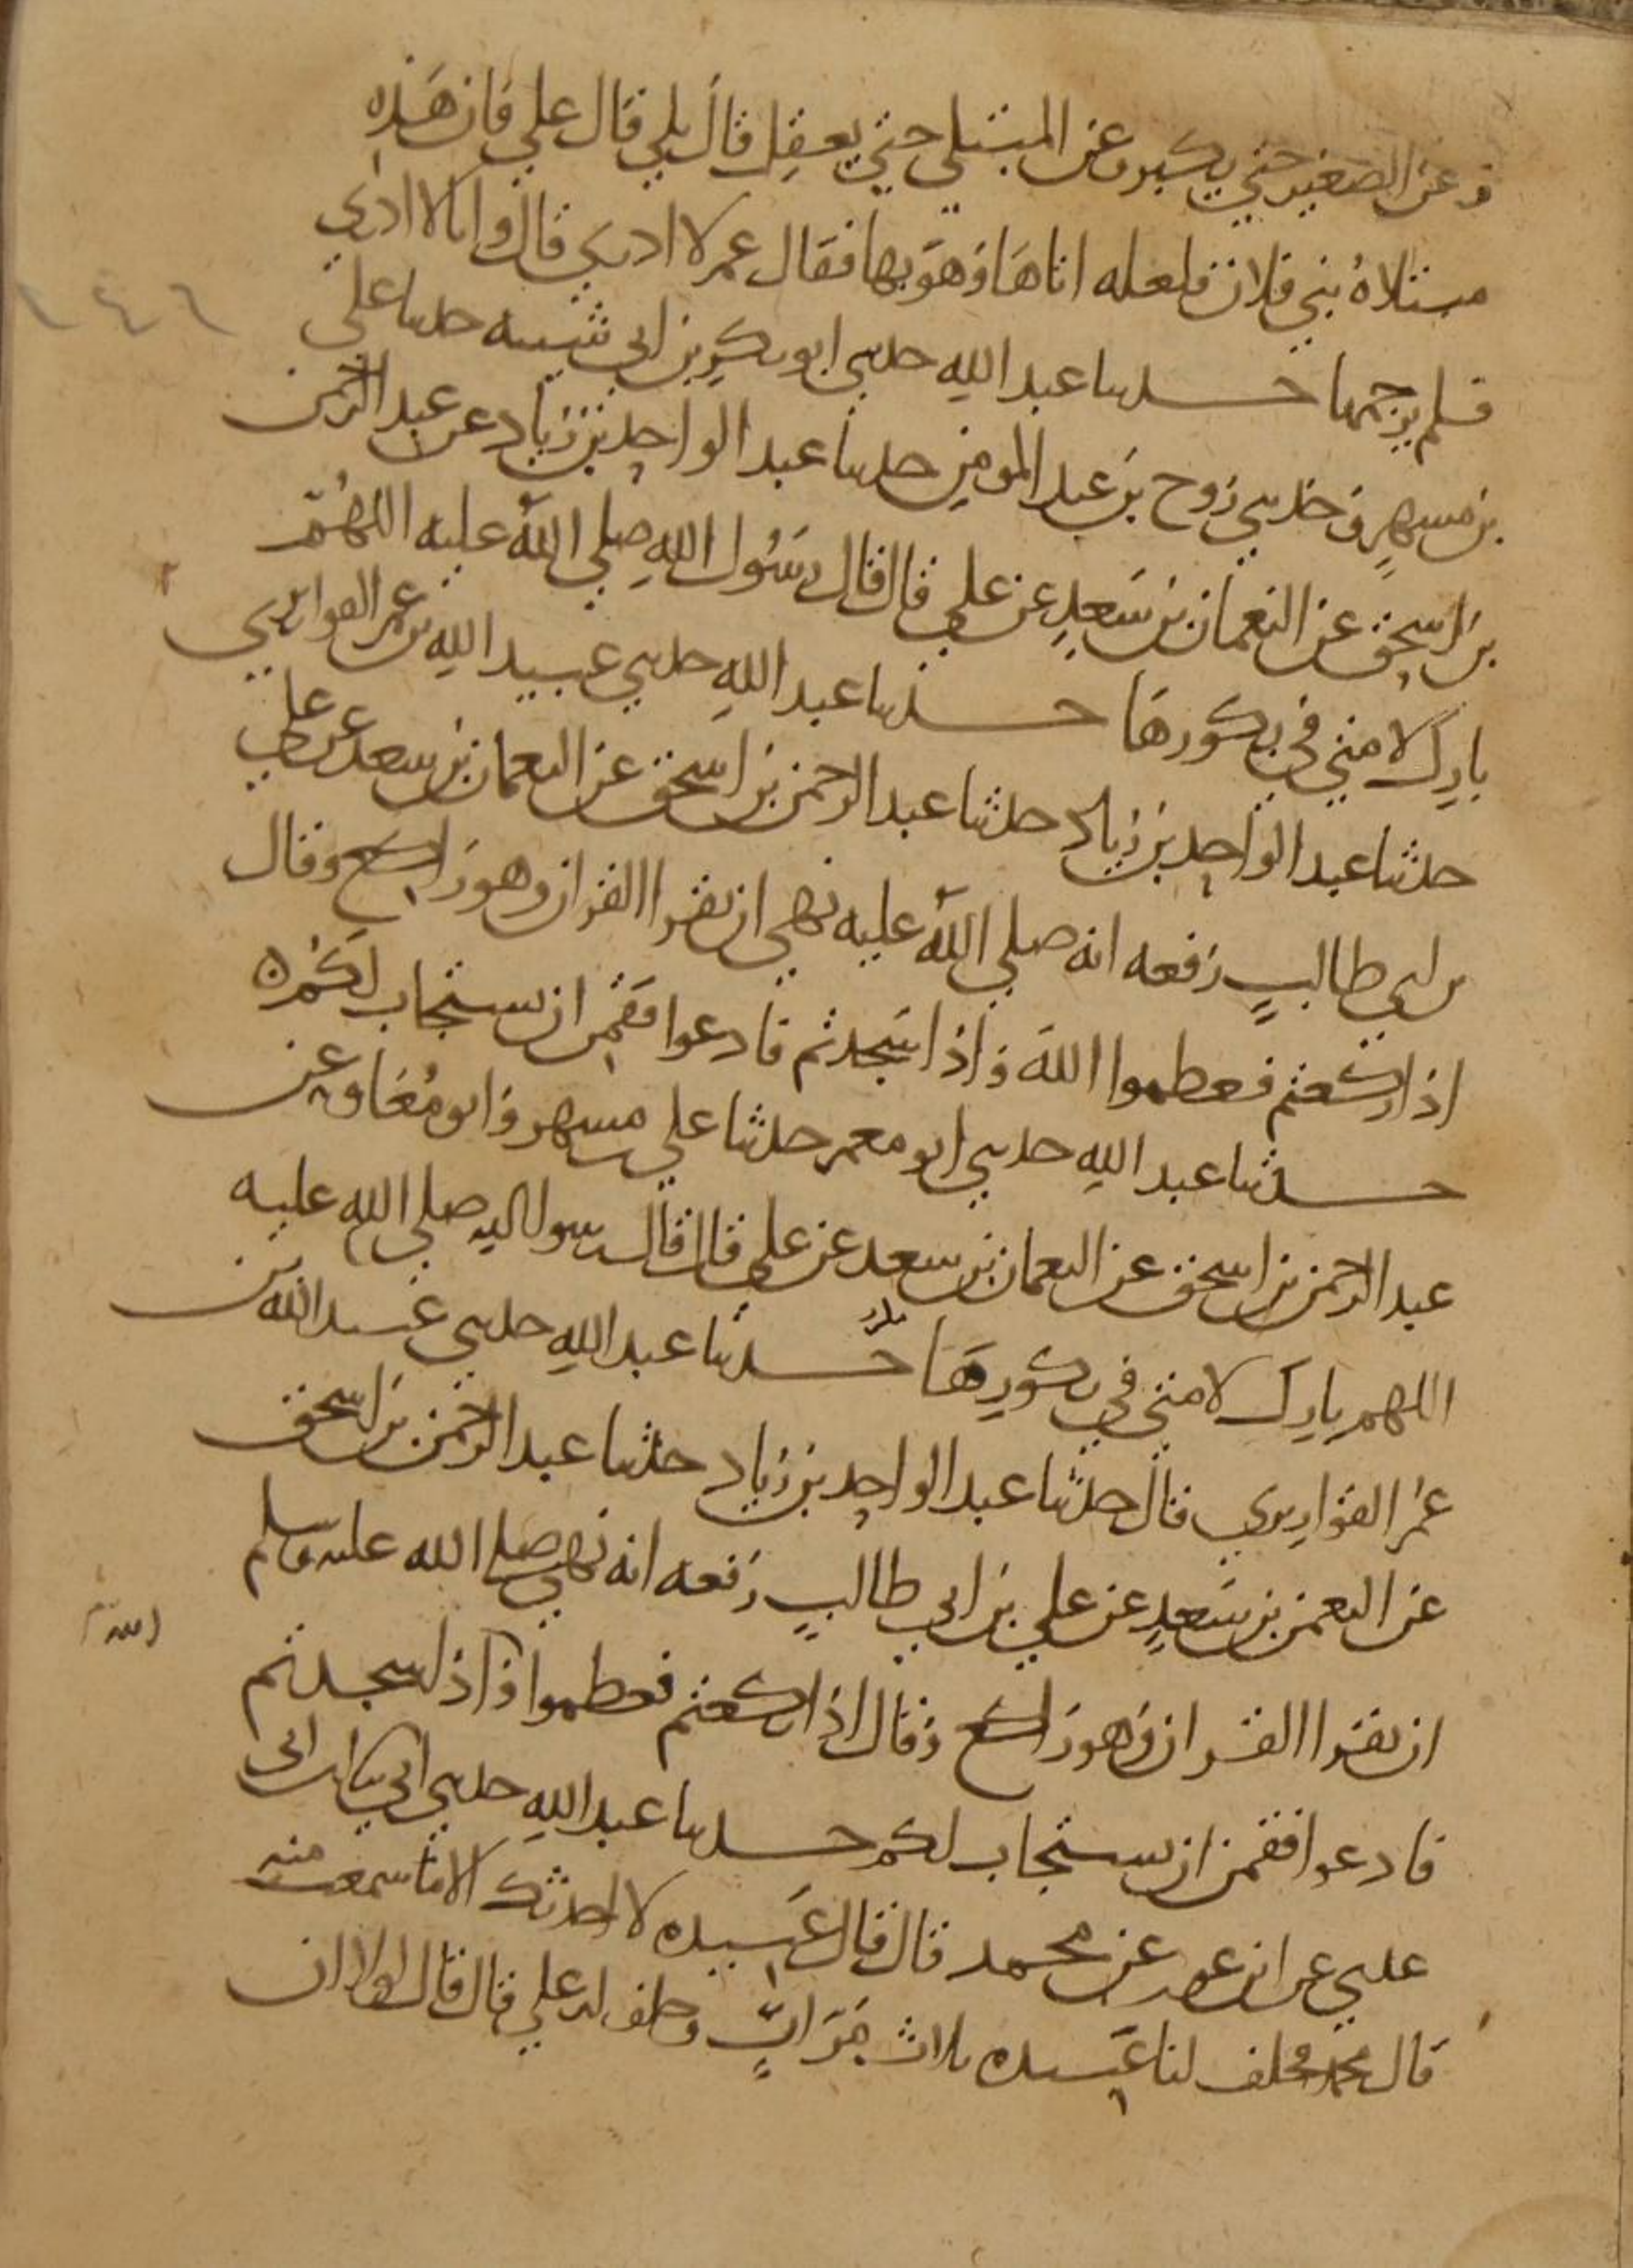 وعن الصغير حتى يكبر وعن المبتلى حتى يعقل قال بلى قال علي فان هذه
مبتلاة بني فلان فلعله اتاها وهو بها فقال عمر لا ادري قال وانا لا ادري
فلم يرجمها حدثنا عبد الله حدثني ابو بكر بن ابي شيبه حدثنا علي
٢٤٦
بن مسهر وحدثني روح بن عبد المومن حدثنا عبد الواحد بن زياد عن عبد الرحمن
بن اسحق عن النعمان بن سعد عن علي قال قال رسول الله صلى الله عليه اللهم
بارك لامتي في بكورها حدثنا عبد الله حدثني عبيد الله بن عمر القواريري
حدثنا عبد الواحد بن زياد حدثنا عبد الرحمن بن اسحق عن النعمان بن سعد عن علي
بن ابي طالب رفعه انه صلى الله عليه نهى ان يقرا القران وهو راكع وقال
اذا ركعتم فعظموا الله واذا سجدتم فادعوا فقمن ان يستجاب لكم
حدثنا عبد الله حدثني ابو معمر حدثنا علي بن مسهر وابو معاوية عن
عبد الرحمن بن اسحق عن النعمان بن سعد عن علي قال قال رسول الله صلى الله عليه
اللهم بارك لامتي في بكورها حدثنا عبد الله حدثني عبيد الله بن
عمر القواريري قال حدثنا عبد الواحد بن زياد حدثنا عبد الرحمن بن اسحق
عن النعمن بن سعد عن علي بن ابي طالب رفعه انه نهى صلى الله عليه وسلم
ان يقرا القران وهو راكع وقال اذا ركعتم فعظموا واذا سجدتم
الله
فادعوا فقمن ان يستجاب لكم حدثنا عبد الله حدثني ابي ثنا ابن ابي
عدي عن ابن عون عن محمد قال قال عبيده لا احدثك الا ما سمعت منه
قال محمد فحلف لنا عبيده ثلاث مرات وحلف له علي قال قال لولا ان